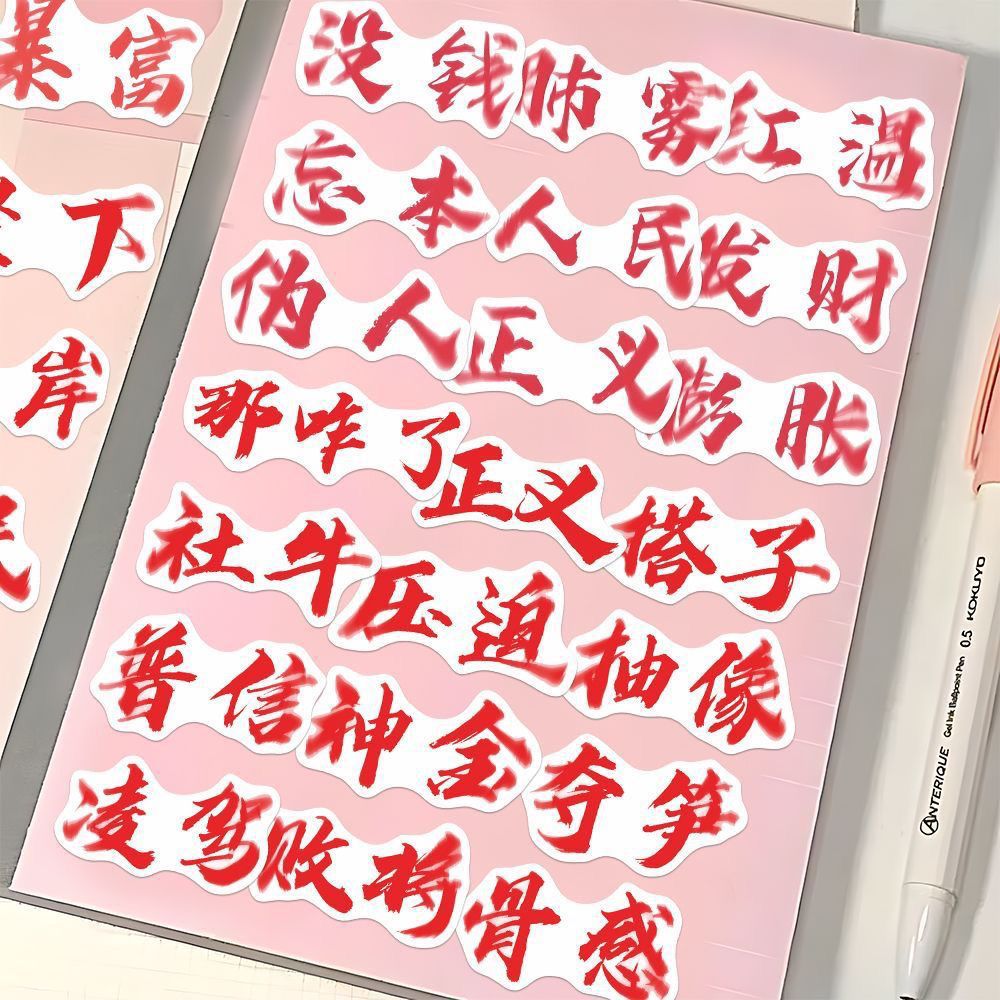 暴富
下
岸
民
没钱 肺雾 红温
忘本 人民 发财
伪人 正义 膨胀
那咋了 正义 搭子
社牛 压迫 抽像
普信 神金 夺笋
凌驾 败将 骨感
ANTERIQUE Gel Ink Ballpoint Pen 0.5 KOKUYO